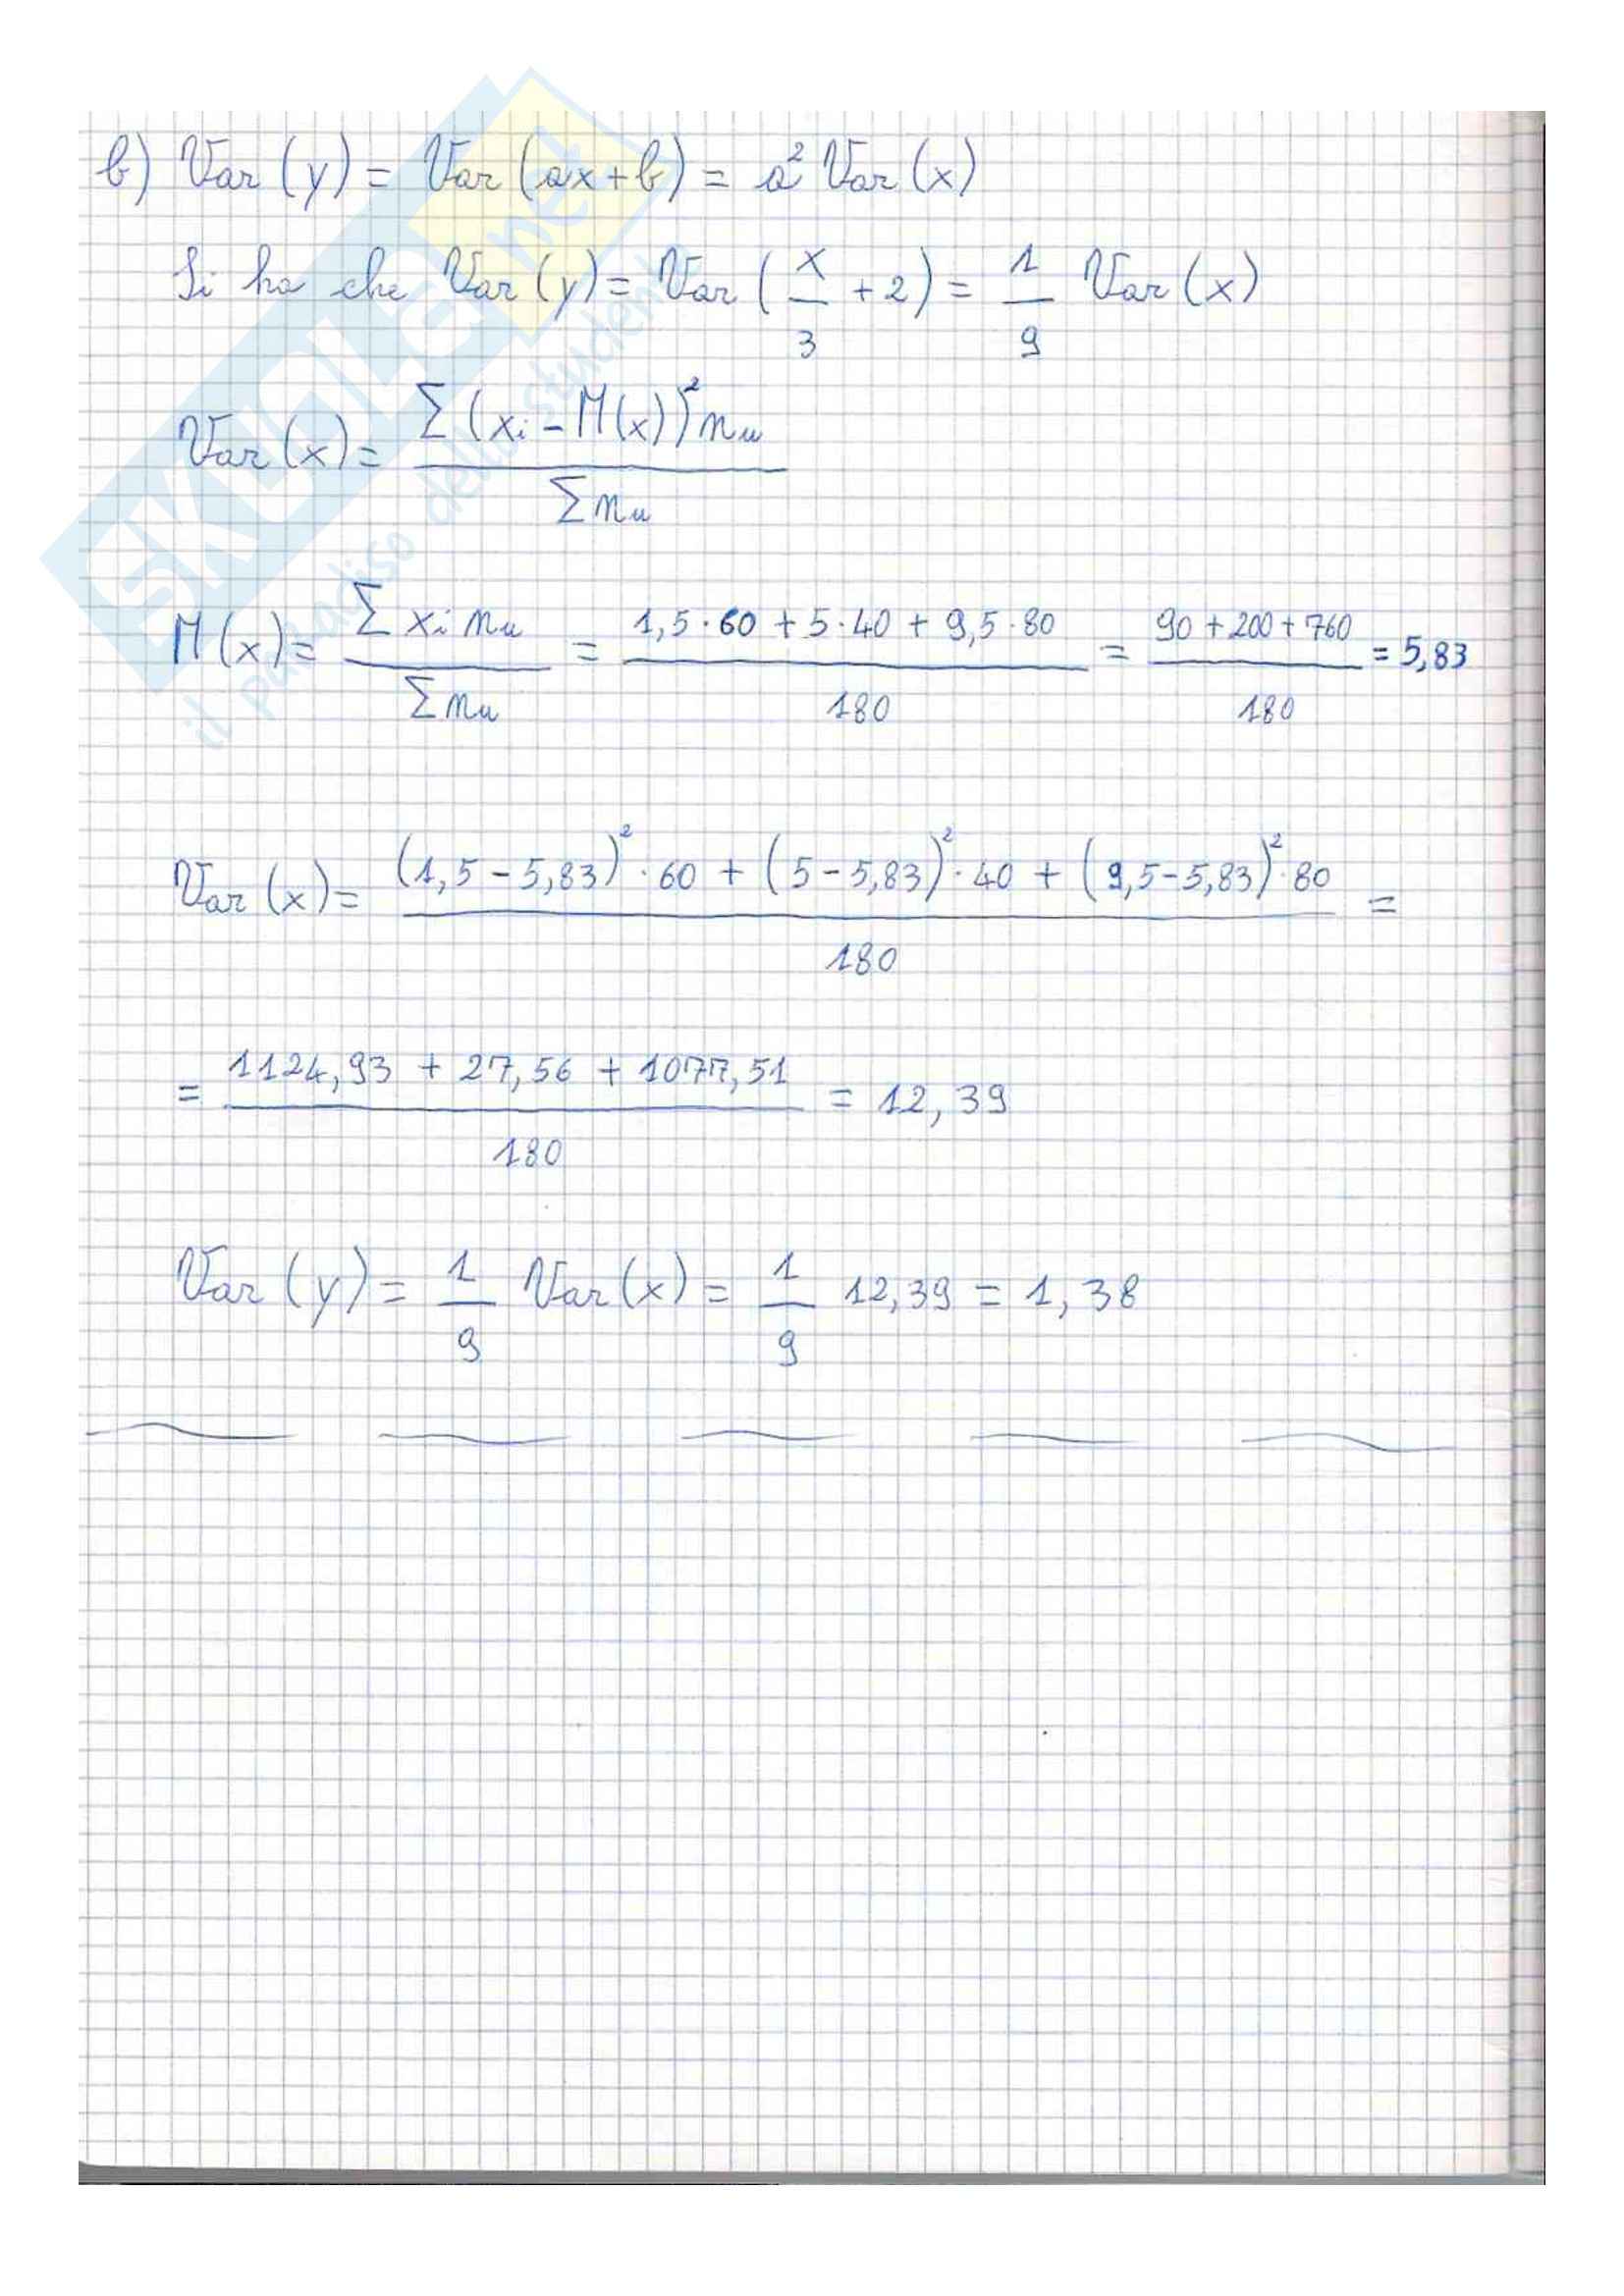 b) Var (y) = Var (ax+b) = a² Var (x)
Si ha che Var (y) = Var (x/3 + 2) = 1/9 Var (x)
Var (x) = Σ (xi - M(x))² nu / Σ nu
M (x) = Σ xi nu / Σ nu = 1,5 · 60 + 5 · 40 + 9,5 · 80 / 180 = 90 + 200 + 760 / 180 = 5,83
Var (x) = (1,5 - 5,83)² · 60 + (5 - 5,83)² · 40 + (9,5 - 5,83)² · 80 / 180 =
= 1124,93 + 27,56 + 1077,51 / 180 = 12,39
Var (y) = 1/9 Var (x) = 1/9 12,39 = 1,38
SKUOLA.net
il paradiso dello studente